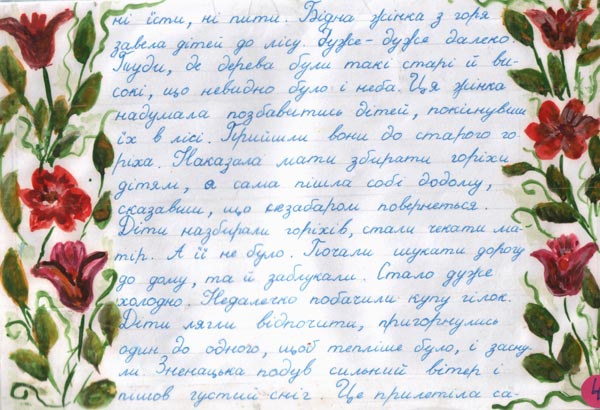 ні їсти, ні пити. Бідна жінка з горя
завела дітей до лісу. Дуже-дуже далеко.
Туди, де дерева були такі старі й ви-
сокі, що невидно було і неба. Ця жінка
надумала позбавитись дітей, покинувши
їх в лісі. Прийшли вони до старого го-
ріха. Наказала мати збирати горіхи
дітям, а сама пішла собі додому,
сказавши, що незабаром повернеться.
Діти назбирали горіхів, стали чекати ма-
тір. А її не було. Почали шукати дорогу
до дому, та й заблукали. Стало дуже
холодно. Недалечко побачили купу гілок.
Діти лягли відпочити, пригорнулись
один до одного, щоб тепліше було, і засну-
ли. Зненацька подув сильний вітер і
пішов густий сніг. Це прилетіла са-
4